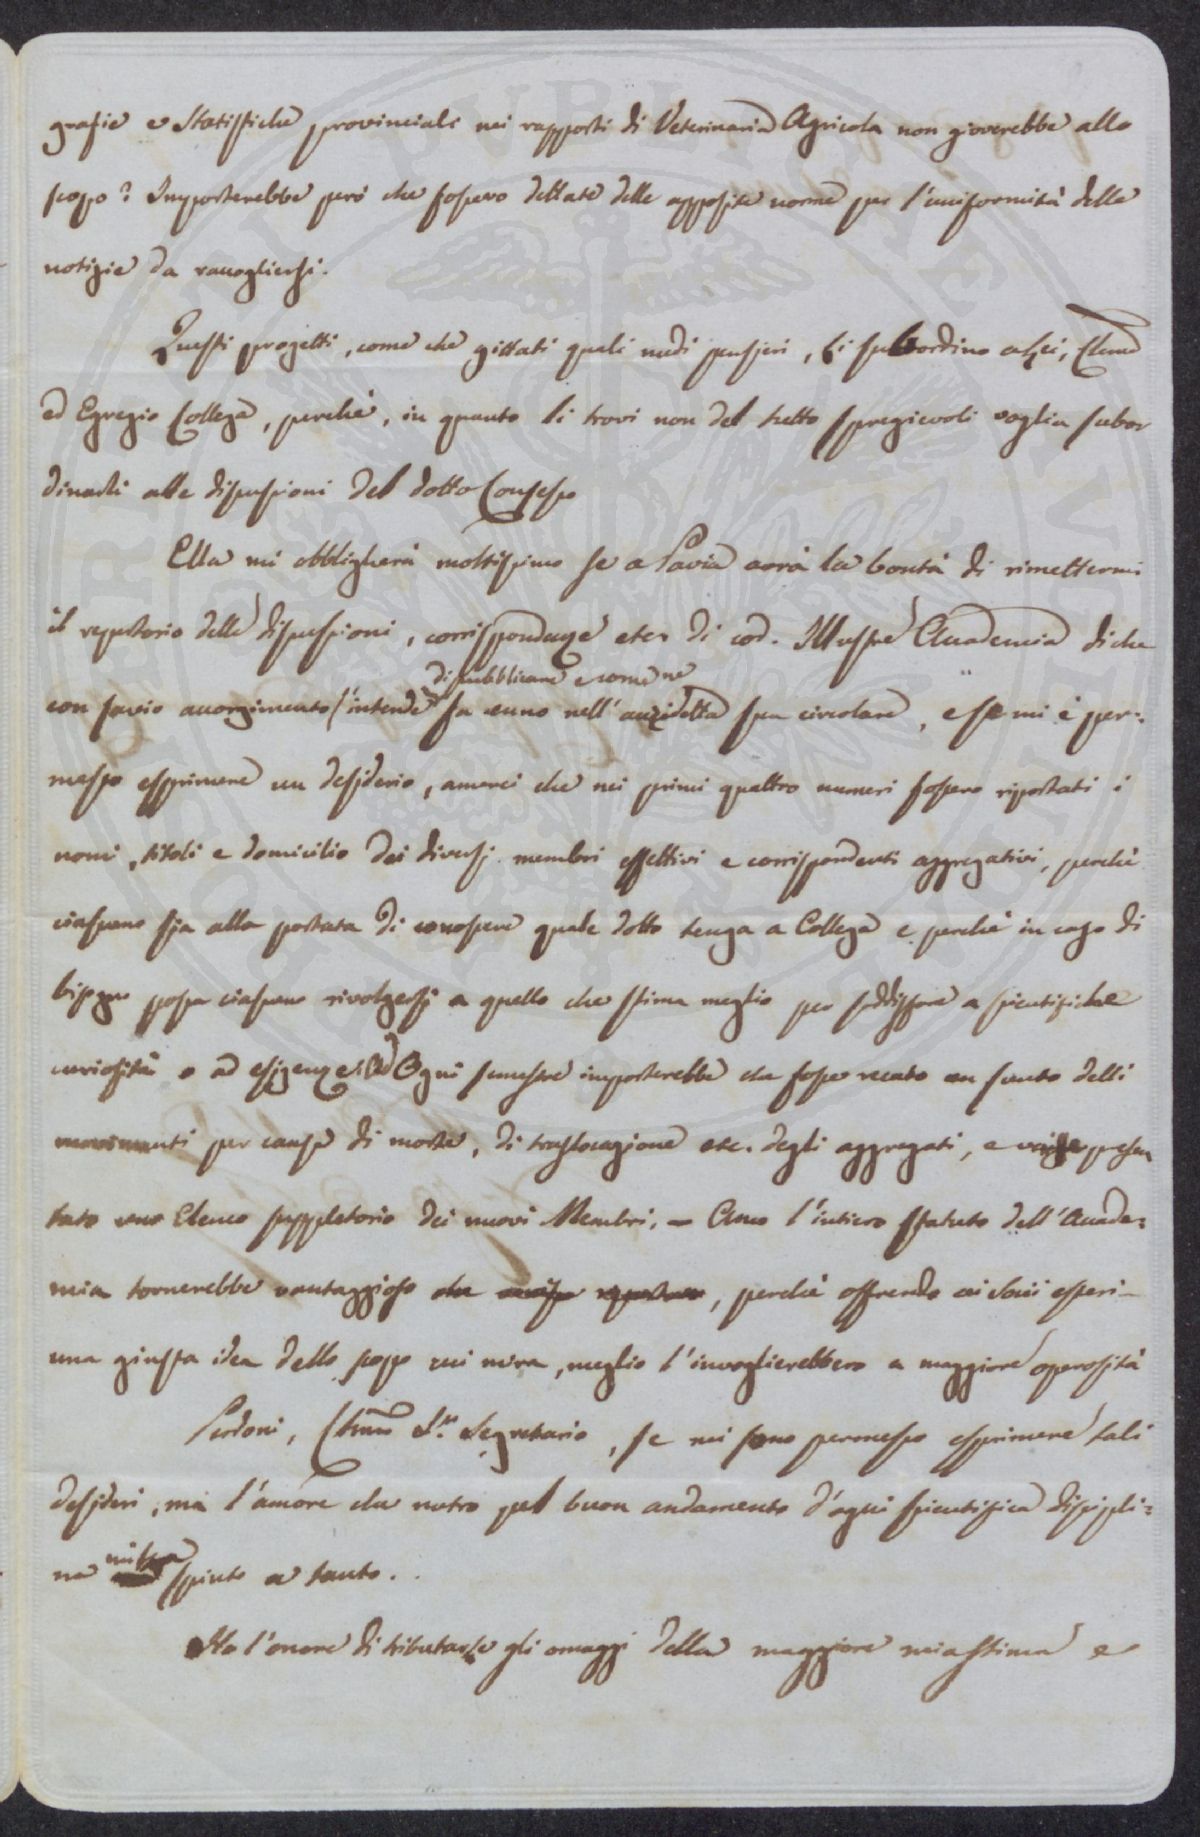 grafie e Statistiche provinciali nei rapporti di Veterinaria Agricola non gioverebbe allo
scopo? Importerebbe però che fossero dettate delle apposite norme per l'uniformità delle
notizie da raccogliersi.
Questi progetti, come che gittati quali nudi pensieri, li subordino a Lei,
ed Egregio Collega, perchè, in quanto li trovi non del tutto spregievoli voglia subor
dinarli alle discussioni del dotto Consesso
Ella mi obbligherà moltissimo se a Pavia avrà la bontà di rimettermi
il repertorio delle discussioni, corrispondenze etc. di cod. Illustre Accademia di che
di pubblicare e come ne
con savio accorgimento s'intende fa cenno nell'anzidetta sua circolare, e se mi è per=
messo esprimere un desiderio, amerei che nei primi quattro numeri fossero riportati i
nomi, titoli e domicilio dei diversi membri effettivi e corrispondenti aggregativi, perchè
ciascuno sia alla portata di conoscere quale dotto tenga a Collega e perchè in caso di
bisogno possa ciascuno rivolgersi a quello che stima meglio per soddisfare a scientifiche
curiosità o ad esigenze. Ogni semestre importerebbe che fosse recato un sunto delli
movimenti per causa di morte, di traslocazione etc. degli aggregati, e venisse presen
tato uno Elenco suppletorio dei nuovi Membri. – Anco l'intiero statuto dell'Accade=
mia tornerebbe vantaggioso, perchè offrendo ai Socii esteri
una giusta idea dello scopo cui mira, meglio l'invoglierebbero a maggiore operosità
Perdoni, Chmo Sr. Segretario, se mi sono permesso esprimere tali
desideri, ma l'amore che nutro pel buon andamento d'ogni scientifica discipli=
na mi ha spinto a tanto.
Ho l'onore di tributarle gli omaggi della maggiore mia stima e